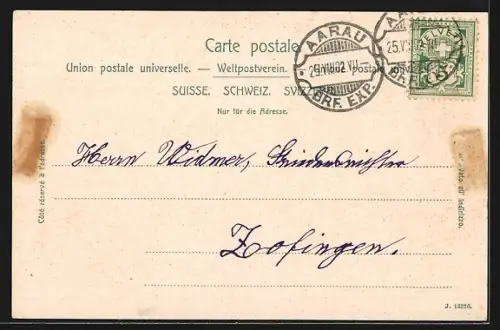 Carte postale.
Union postale universelle. — Weltpostverein. — Unione postale
SUISSE. SCHWEIZ. SVIZZERA.
Nur für die Adresse.
AARAU
25.VII.02.VII
BRF. EXP.
AARAU
25.VII
BRF.
HELVETIA
5
Côté réservé à l'adresse.
Herrn Widmer, Friedensrichter
Zofingen.
lato all' indirizzo.
J. 13276.